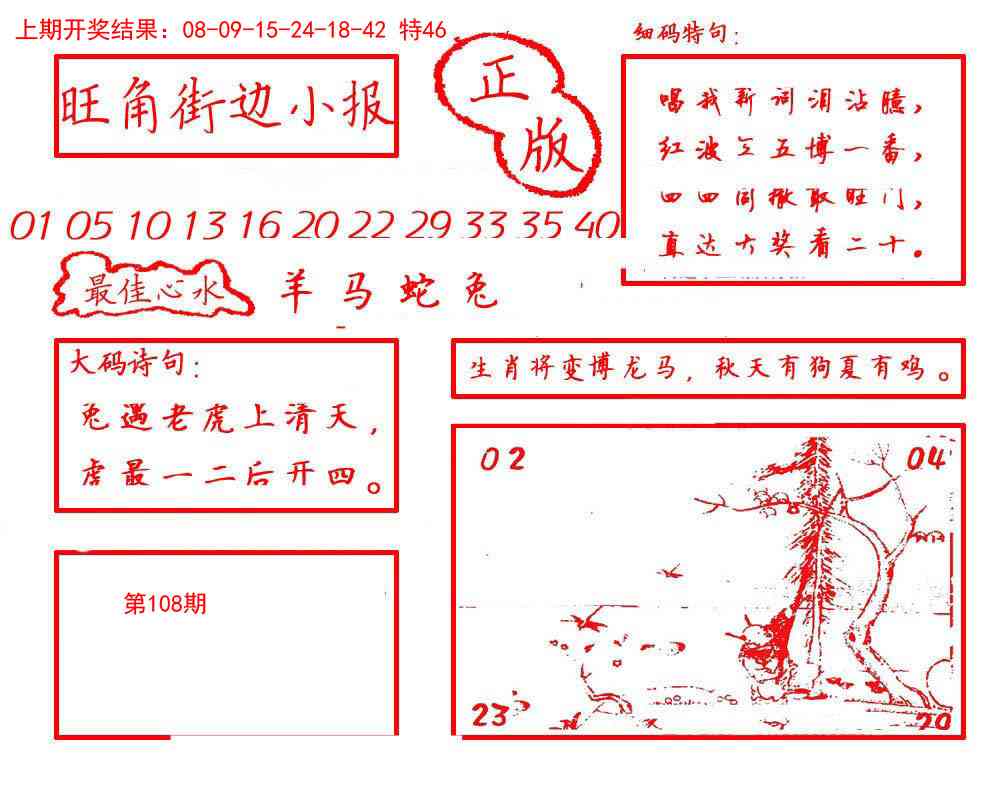 上期开奖结果：08-09-15-24-18-42 特46
细码特句：
旺角街边小报
正版
唱我新词泪沾臆，
红波 五博一番，
四四同撒取旺门，
直达大奖看二十。
01 05 10 13 16 20 22 29 33 35 40
最佳心水
羊马蛇兔
大码诗句：
兔遇老虎上清天，
虎最一二后开四。
生肖将变博龙马，秋天有狗夏有鸡。
02
04
第108期
23
20